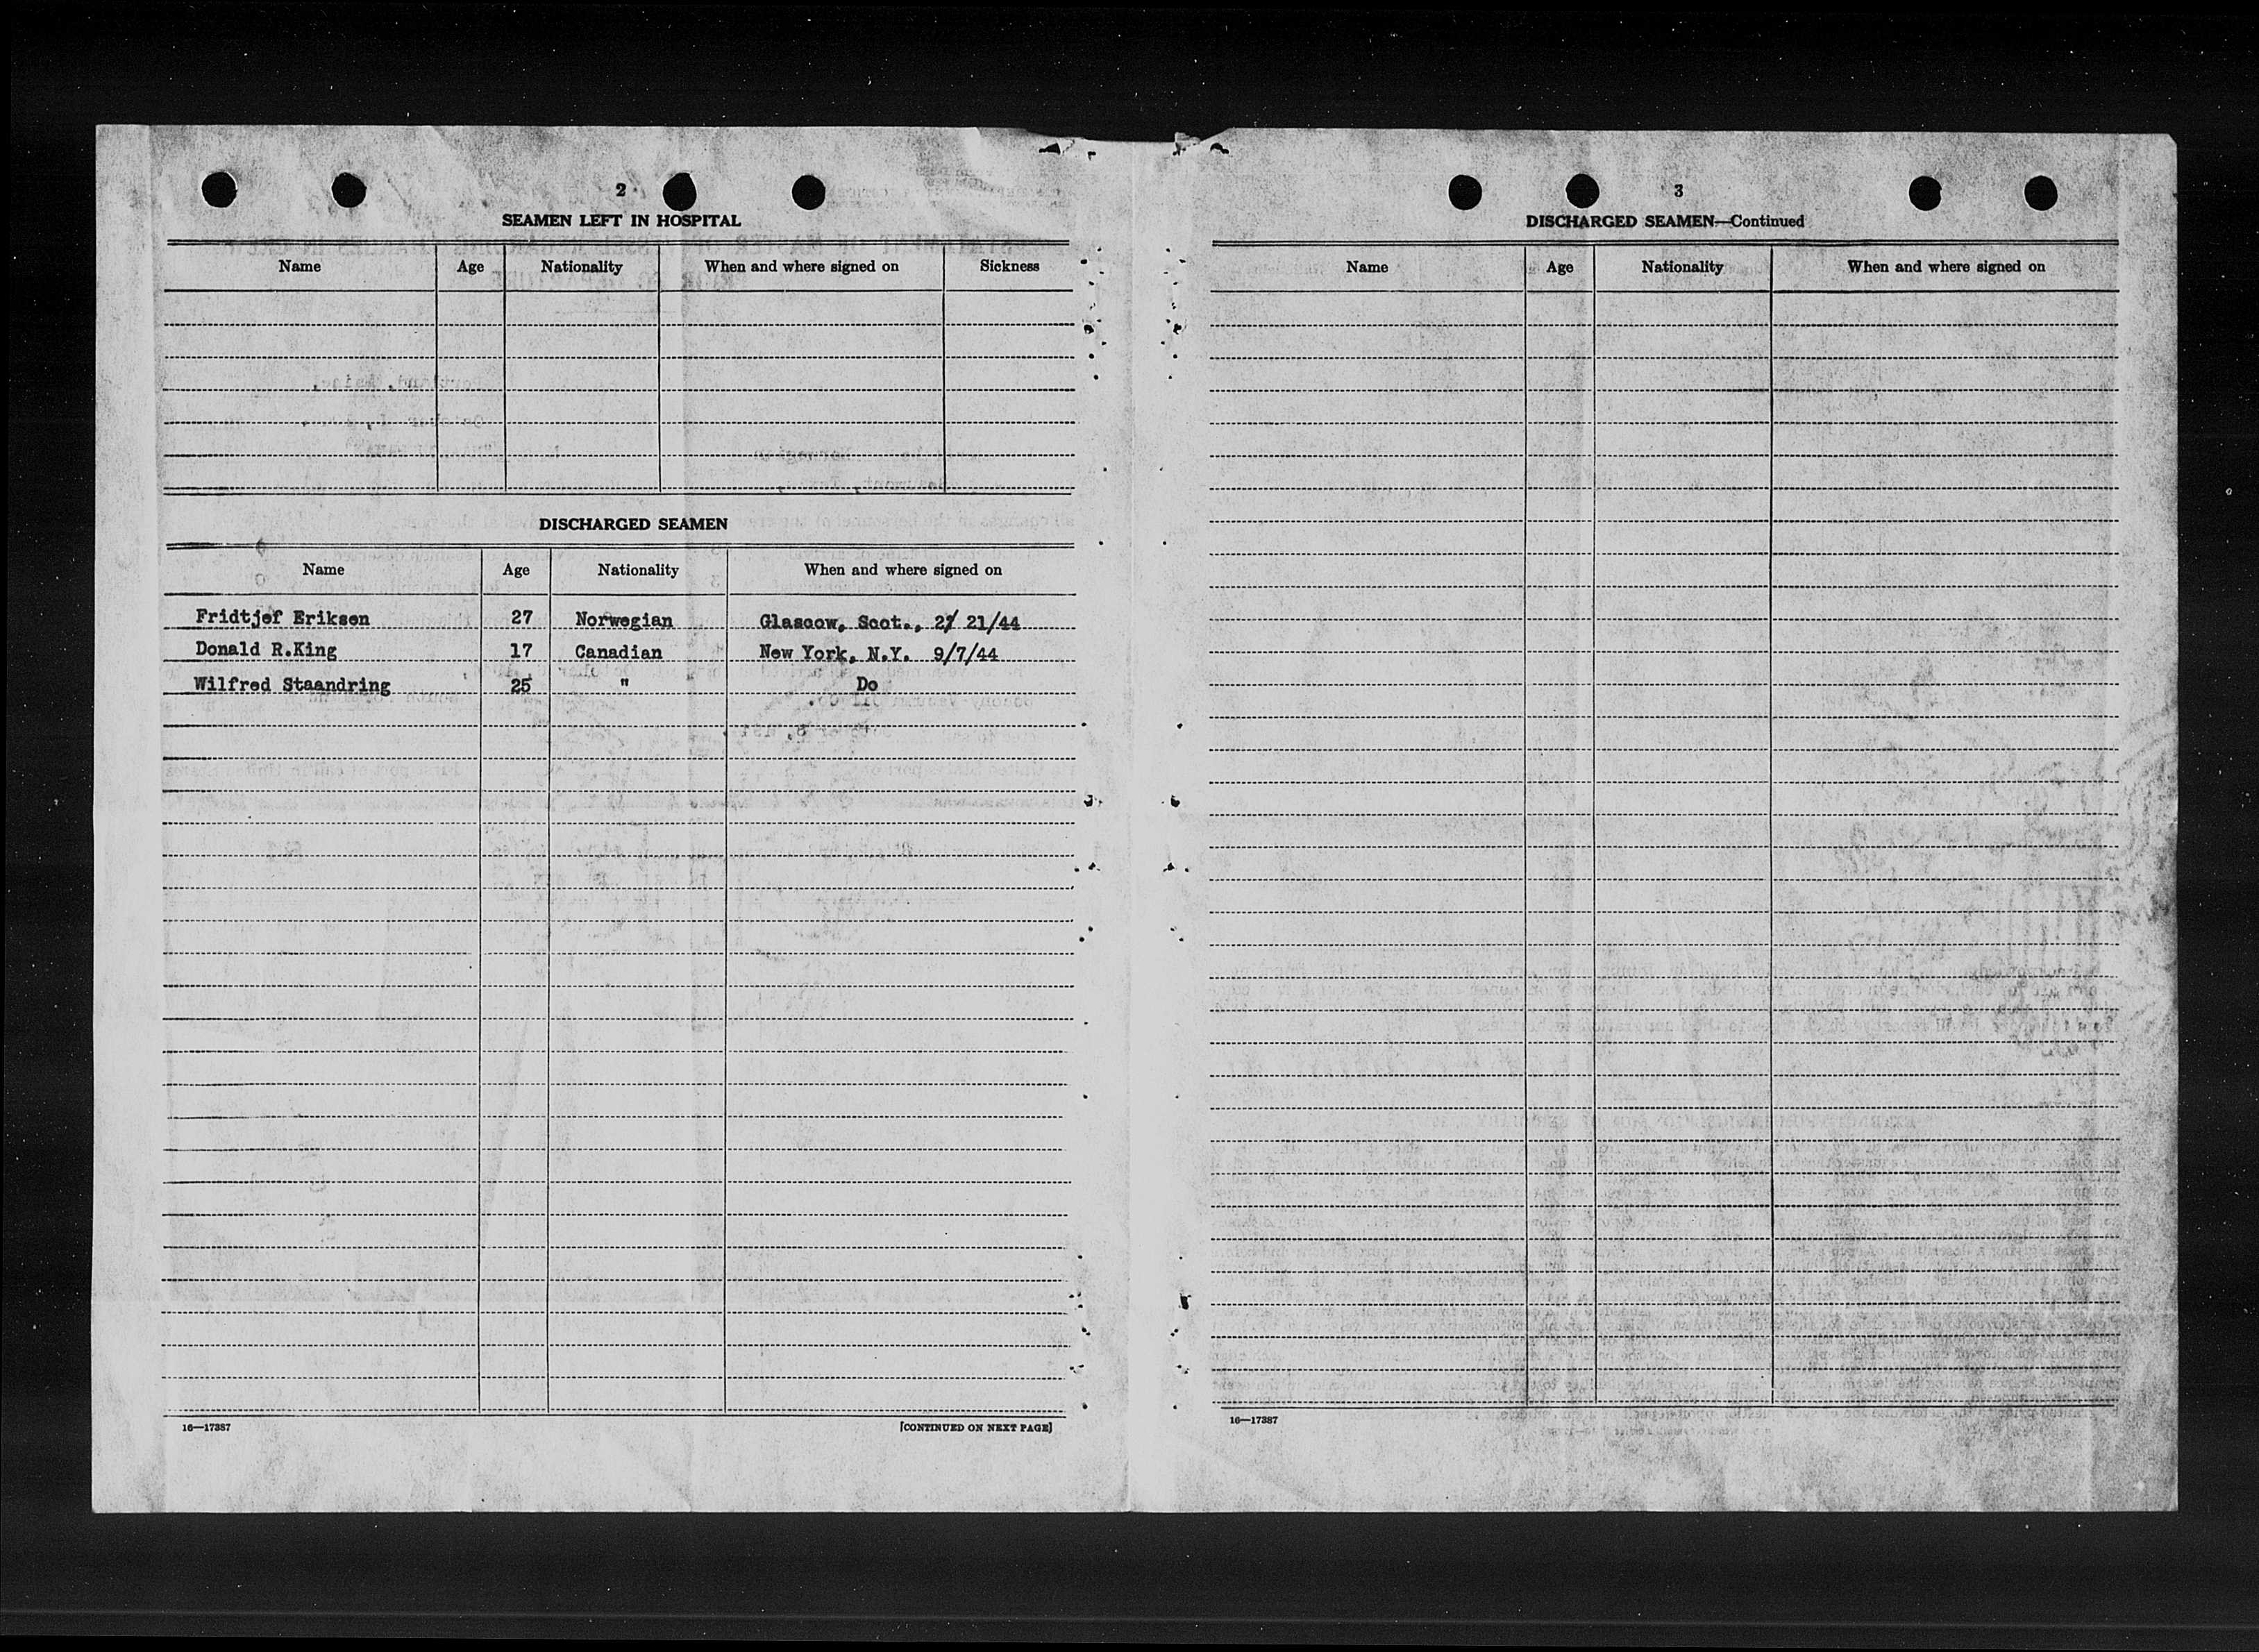 2
SEAMEN LEFT IN HOSPITAL
Name Age Nationality When and where signed on Sickness
DISCHARGED SEAMEN
Name Age Nationality When and where signed on
Fridtjof Eriksen 27 Norwegian Glasgow, Scot., 2/ 21/44
Donald R.King 17 Canadian New York, N.Y. 9/7/44
Wilfred Staandring 25 " Do
16—17387 [CONTINUED ON NEXT PAGE]
3
DISCHARGED SEAMEN—Continued
Name Age Nationality When and where signed on
16—17387